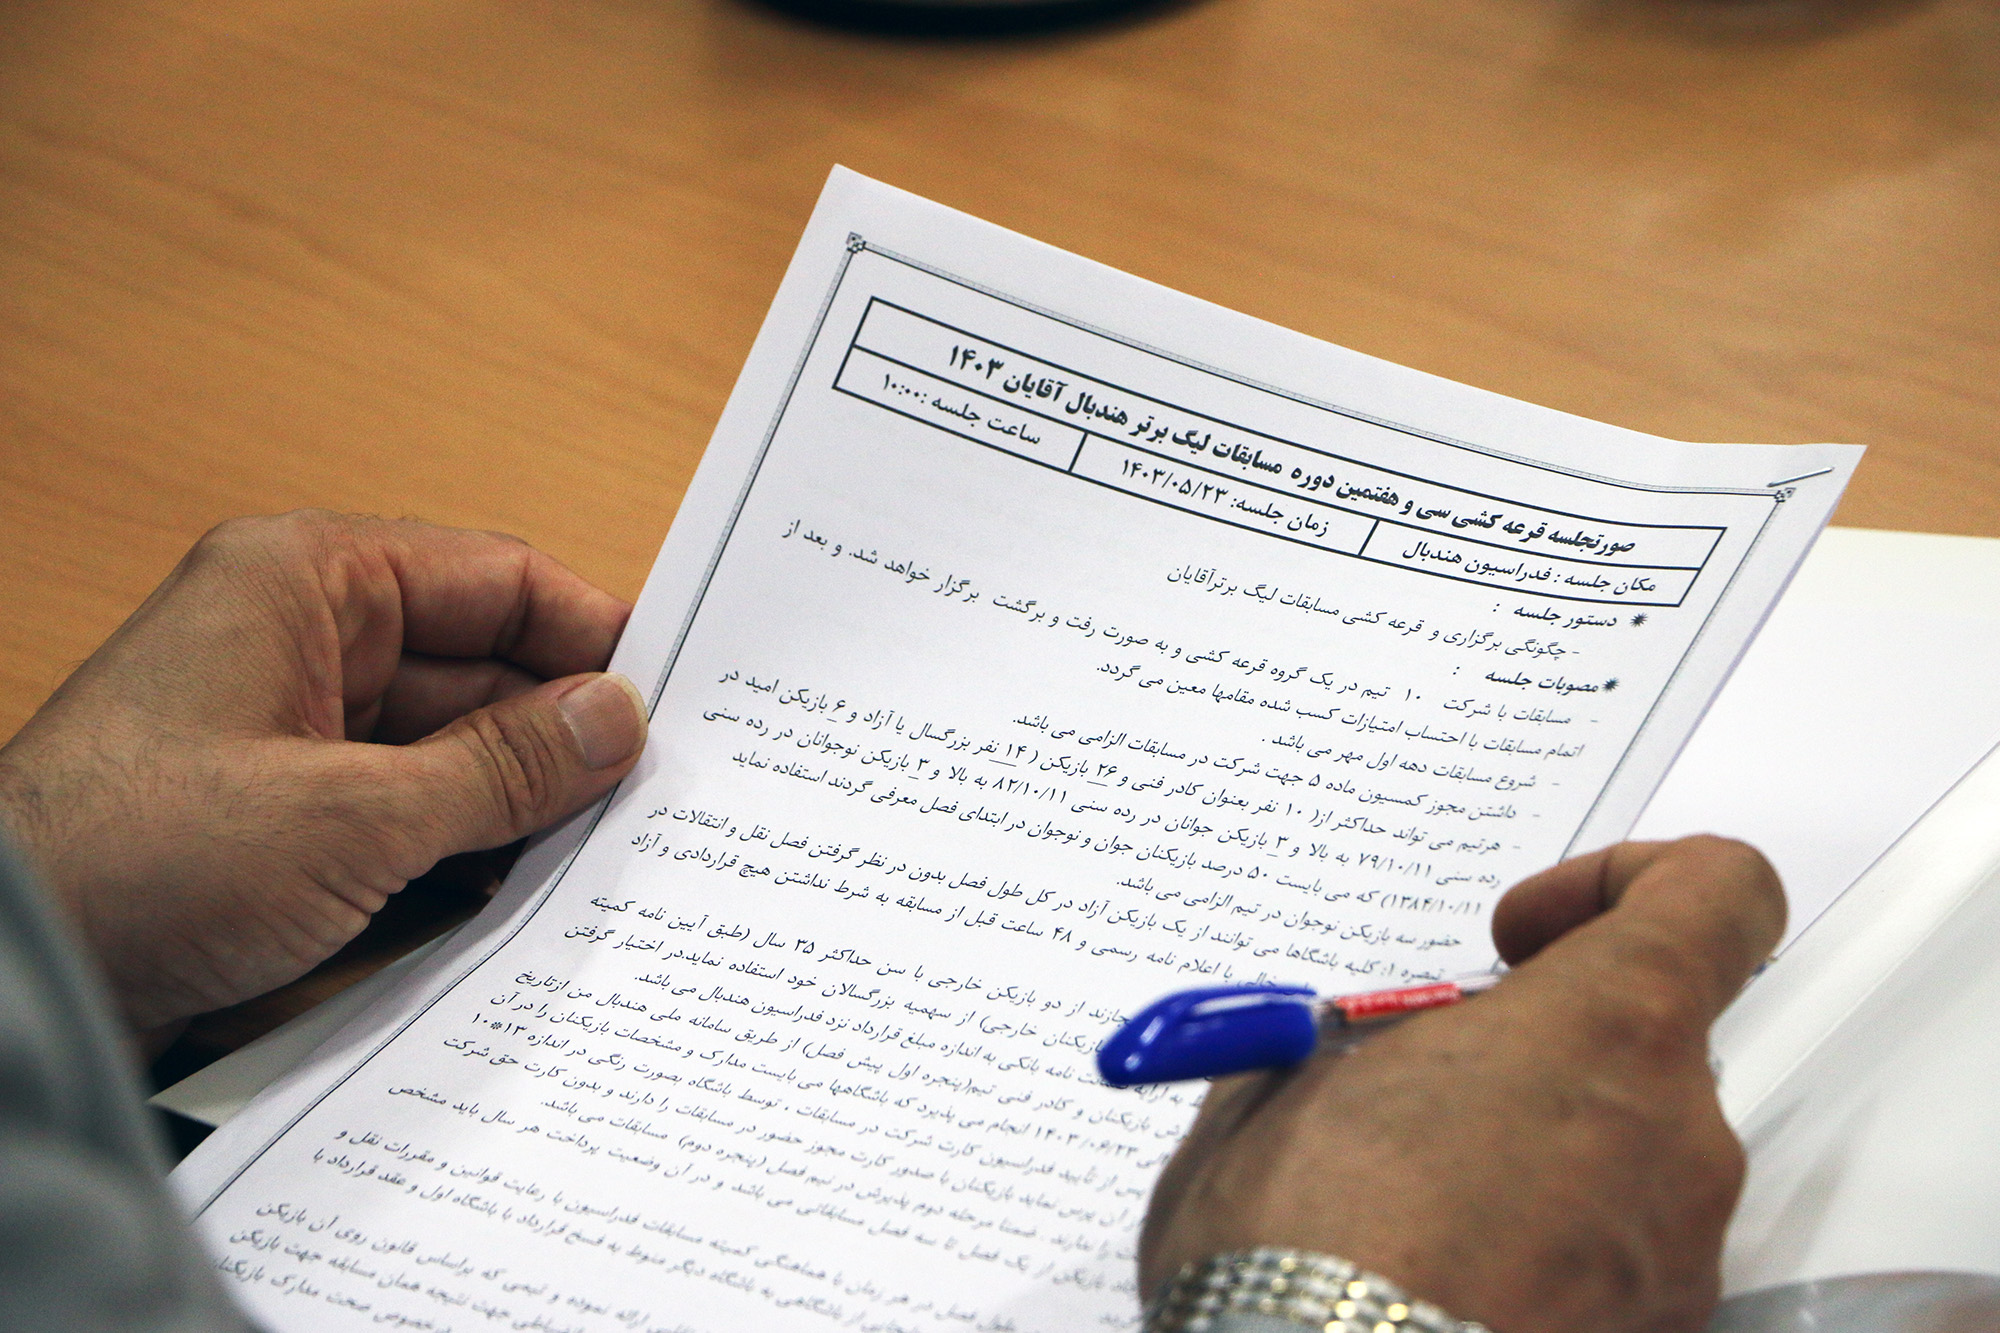 صورتجلسه قرعه کشی سی و هفتمین دوره مسابقات لیگ برتر هندبال آقایان ۱۴۰۳
مکان جلسه : فدراسیون هندبال
زمان جلسه: ۱۴۰۳/۰۵/۲۳
ساعت جلسه :۱۰:۰۰
دستور جلسه :
- چگونگی برگزاری و قرعه کشی مسابقات لیگ برترآقایان
مصوبات جلسه :
- مسابقات با شرکت ۱۰ تیم در یک گروه قرعه کشی و به صورت رفت و برگشت برگزار خواهد شد. و بعد از
اتمام مسابقات با احتساب امتیازات کسب شده مقامها معین می گردد.
- شروع مسابقات دهه اول مهر می باشد .
- داشتن مجوز کمسیون ماده ۵ جهت شرکت در مسابقات الزامی می باشد.
- هرتیم می تواند حداکثر از( ۱۰ نفر بعنوان کادر فنی و ۲۶ بازیکن ( ۱۴ نفر بزرگسال یا آزاد و ۶ بازیکن امید در
رده سنی ۷۹/۱۰/۱۱ به بالا و ۳ بازیکن جوانان در رده سنی ۸۲/۱۰/۱۱ به بالا و ۳ بازیکن نوجوانان در رده سنی
۱۳۸۴/۱۰/۱۱) که می بایست ۵۰ درصد بازیکنان جوان و نوجوان در ابتدای فصل معرفی گردند استفاده نماید
حضور سه بازیکن نوجوان در تیم الزامی می باشد.
تبصره ۱: کلیه باشگاها می توانند از یک بازیکن آزاد در کل طول فصل بدون در نظر گرفتن فصل نقل و انتقالات در
خالی با اعلام نامه رسمی و ۴۸ ساعت قبل از مسابقه به شرط نداشتن هیچ قراردادی و آزاد
مجازند از دو بازیکن خارجی با سن حداکثر ۳۵ سال (طبق آیین نامه کمیته
بازیکنان خارجی) از سهمیه بزرگسالان خود استفاده نماید.در اختیار گرفتن
به ارایه ضمانت نامه بانکی به اندازه مبلغ قرارداد نزد فدراسیون هندبال می باشد.
بازیکنان و کادر فنی تیم(پنجره اول پیش فصل) از طریق سامانه ملی هندبال من ازتاریخ
۱۴۰۳/۰۶/۲۳ انجام می پذیرد که باشگاهها می بایست مدارک و مشخصات بازیکنان را در آن
پس از تایید فدراسیون کارت شرکت در مسابقات ، توسط باشگاه بصورت رنگی در اندازه ۱۳*۱۰
آن پرس نماید بازیکنان با صدور کارت مجوز حضور در مسابقات را دارند و بدون کارت حق شرکت
را ندارند . ضمنا مرحله دوم پذیرش در نیم فصل (پنجره دوم) مسابقات می باشد.
بازیکن از یک فصل تا سه فصل مسابقاتی می باشد و در آن وضعیت پرداخت هر سال باید مشخص
طول فصل در هر زمان با هماهنگی کمیته مسابقات فدراسیون با رعایت قوانین و مقررات نقل و
از باشگاهی به باشگاه دیگر منوط به فسخ قرارداد با باشگاه اول و عقد قرارداد با
ارائه نموده و تیمی که براساس قانون روی آن بازیکن
جهت نتیجه همان مسابقه جهت بازیکن
درخصوص صحت مدارک بازیکنان